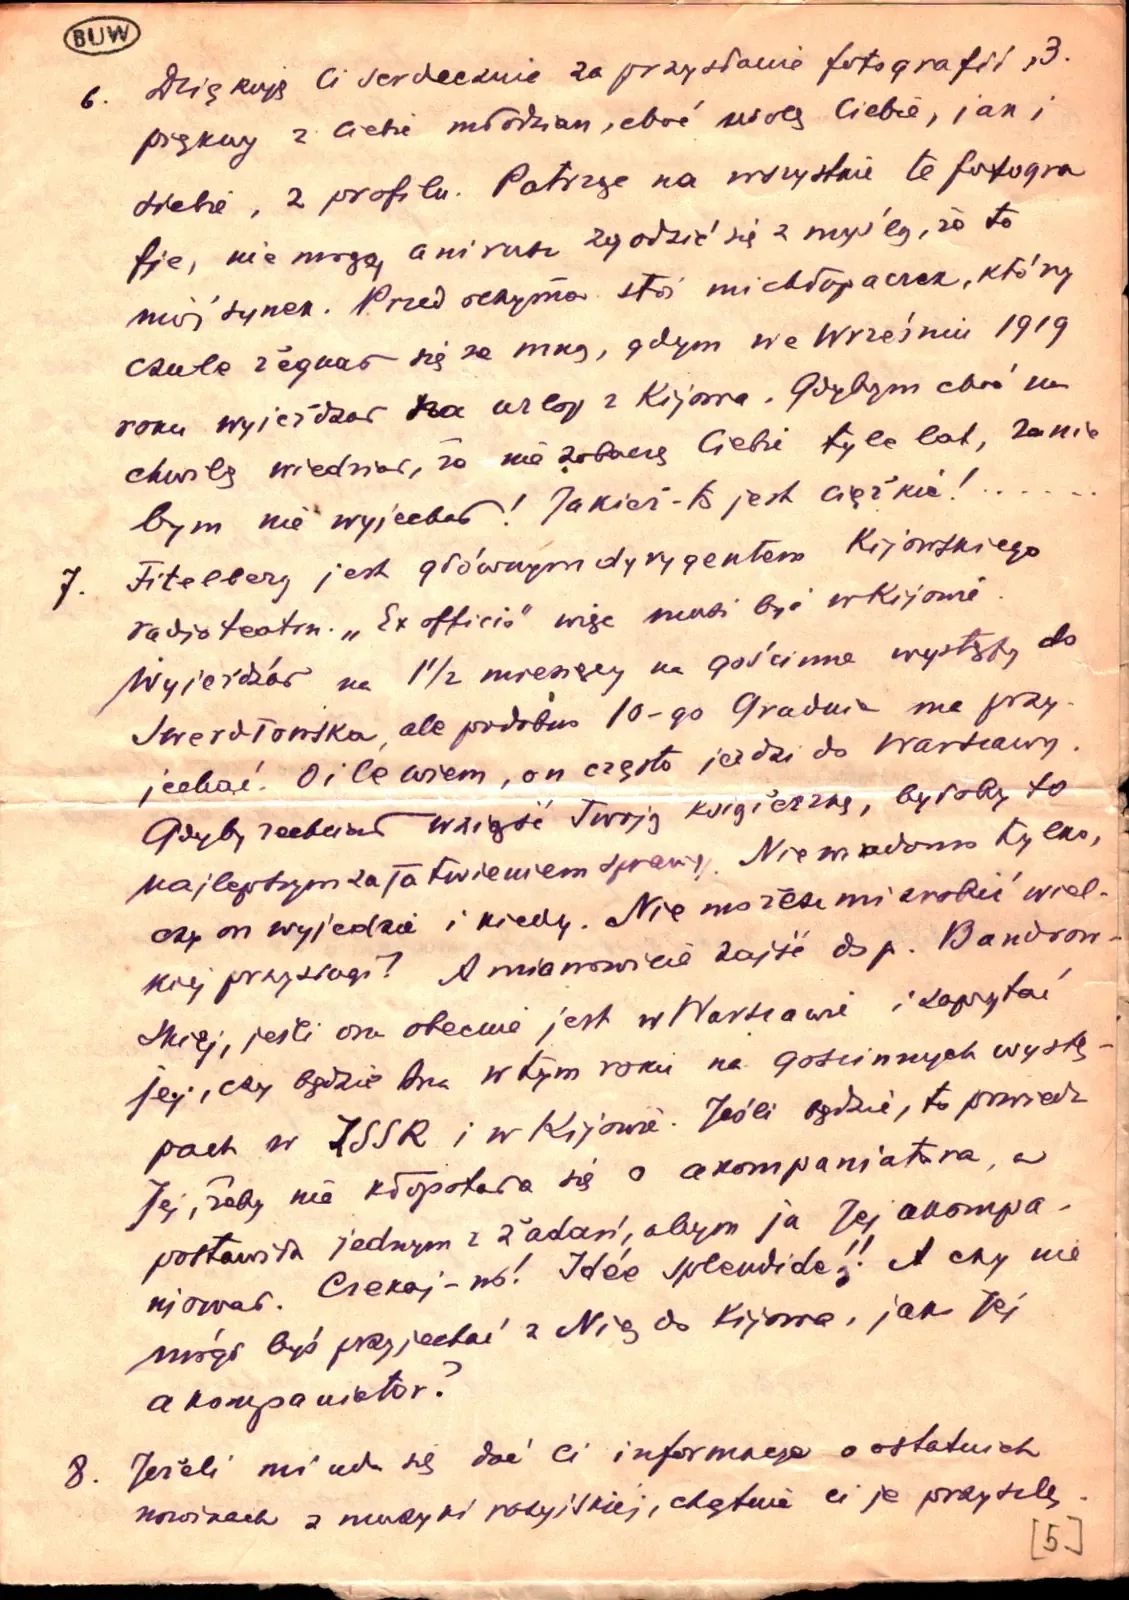 BUW
3.
6. Dziękuję Ci serdecznie za przysłanie fotografii,
piękny z Ciebie młodzian, choć wolę Ciebie, jak i
siebie, z profilu. Patrzę na wszystkie te fotogra
fje, nie mogę ani rusz zgodzić się z myślą, że to
mój synek. Przed oczyma stoi mi chłopaczek, który
czule żegnał się ze mną, gdym we Wrześniu 1919
roku wyjeżdżał na urlop z Kijowa. Gdybym choć na
chwilę wiedział, że nie zobaczę Ciebie tyle lat, za nic
bym nie wyjechał! Jakież-to jest ciężkie! . . . . . .
7. Fitelberg jest głównym dyrygentem Kijowskiego
radjoteatru. „Ex officio" więc musi być w Kijowie.
Wyjeżdżał na 1 1/2 miesięcy na gościnne występy do
Swerdłowska, ale podobno 10-go Grudnia ma przy-
jechać. O ile wiem, on często jeździ do Warszawy.
Gdyby zechciał wziąść Twoją książeczkę, byłoby to
najlepszym załatwieniem sprawy. Niewiadomo tylko,
czy on wyjedzie i kiedy. Nie możesz mi zrobić wiel-
kiej przysługi? A mianowicie zajść do p. Bandrow-
skiej, jeśli ona obecnie jest w Warszawie i zapytać
jej, czy będzie ona w tym roku na gościnnych wystę-
pach w ZSSR i w Kijowie. Jeśli będzie, to powiedz
Jej, żeby nie kłopotała się o akompaniatora, a
postawiła jednym z żądań, abym ja Jej akompa-
njował. Czekaj-no! Idée splendide!! A czy nie
mógł byś przyjechać z Nią do Kijowa, jak Jej
akompaniator?
8. Jeżeli mi uda się dać Ci informacje o ostatnich
nowinach z muzyki rosyjskiej, chętnie ci je przyszlę.
[5]